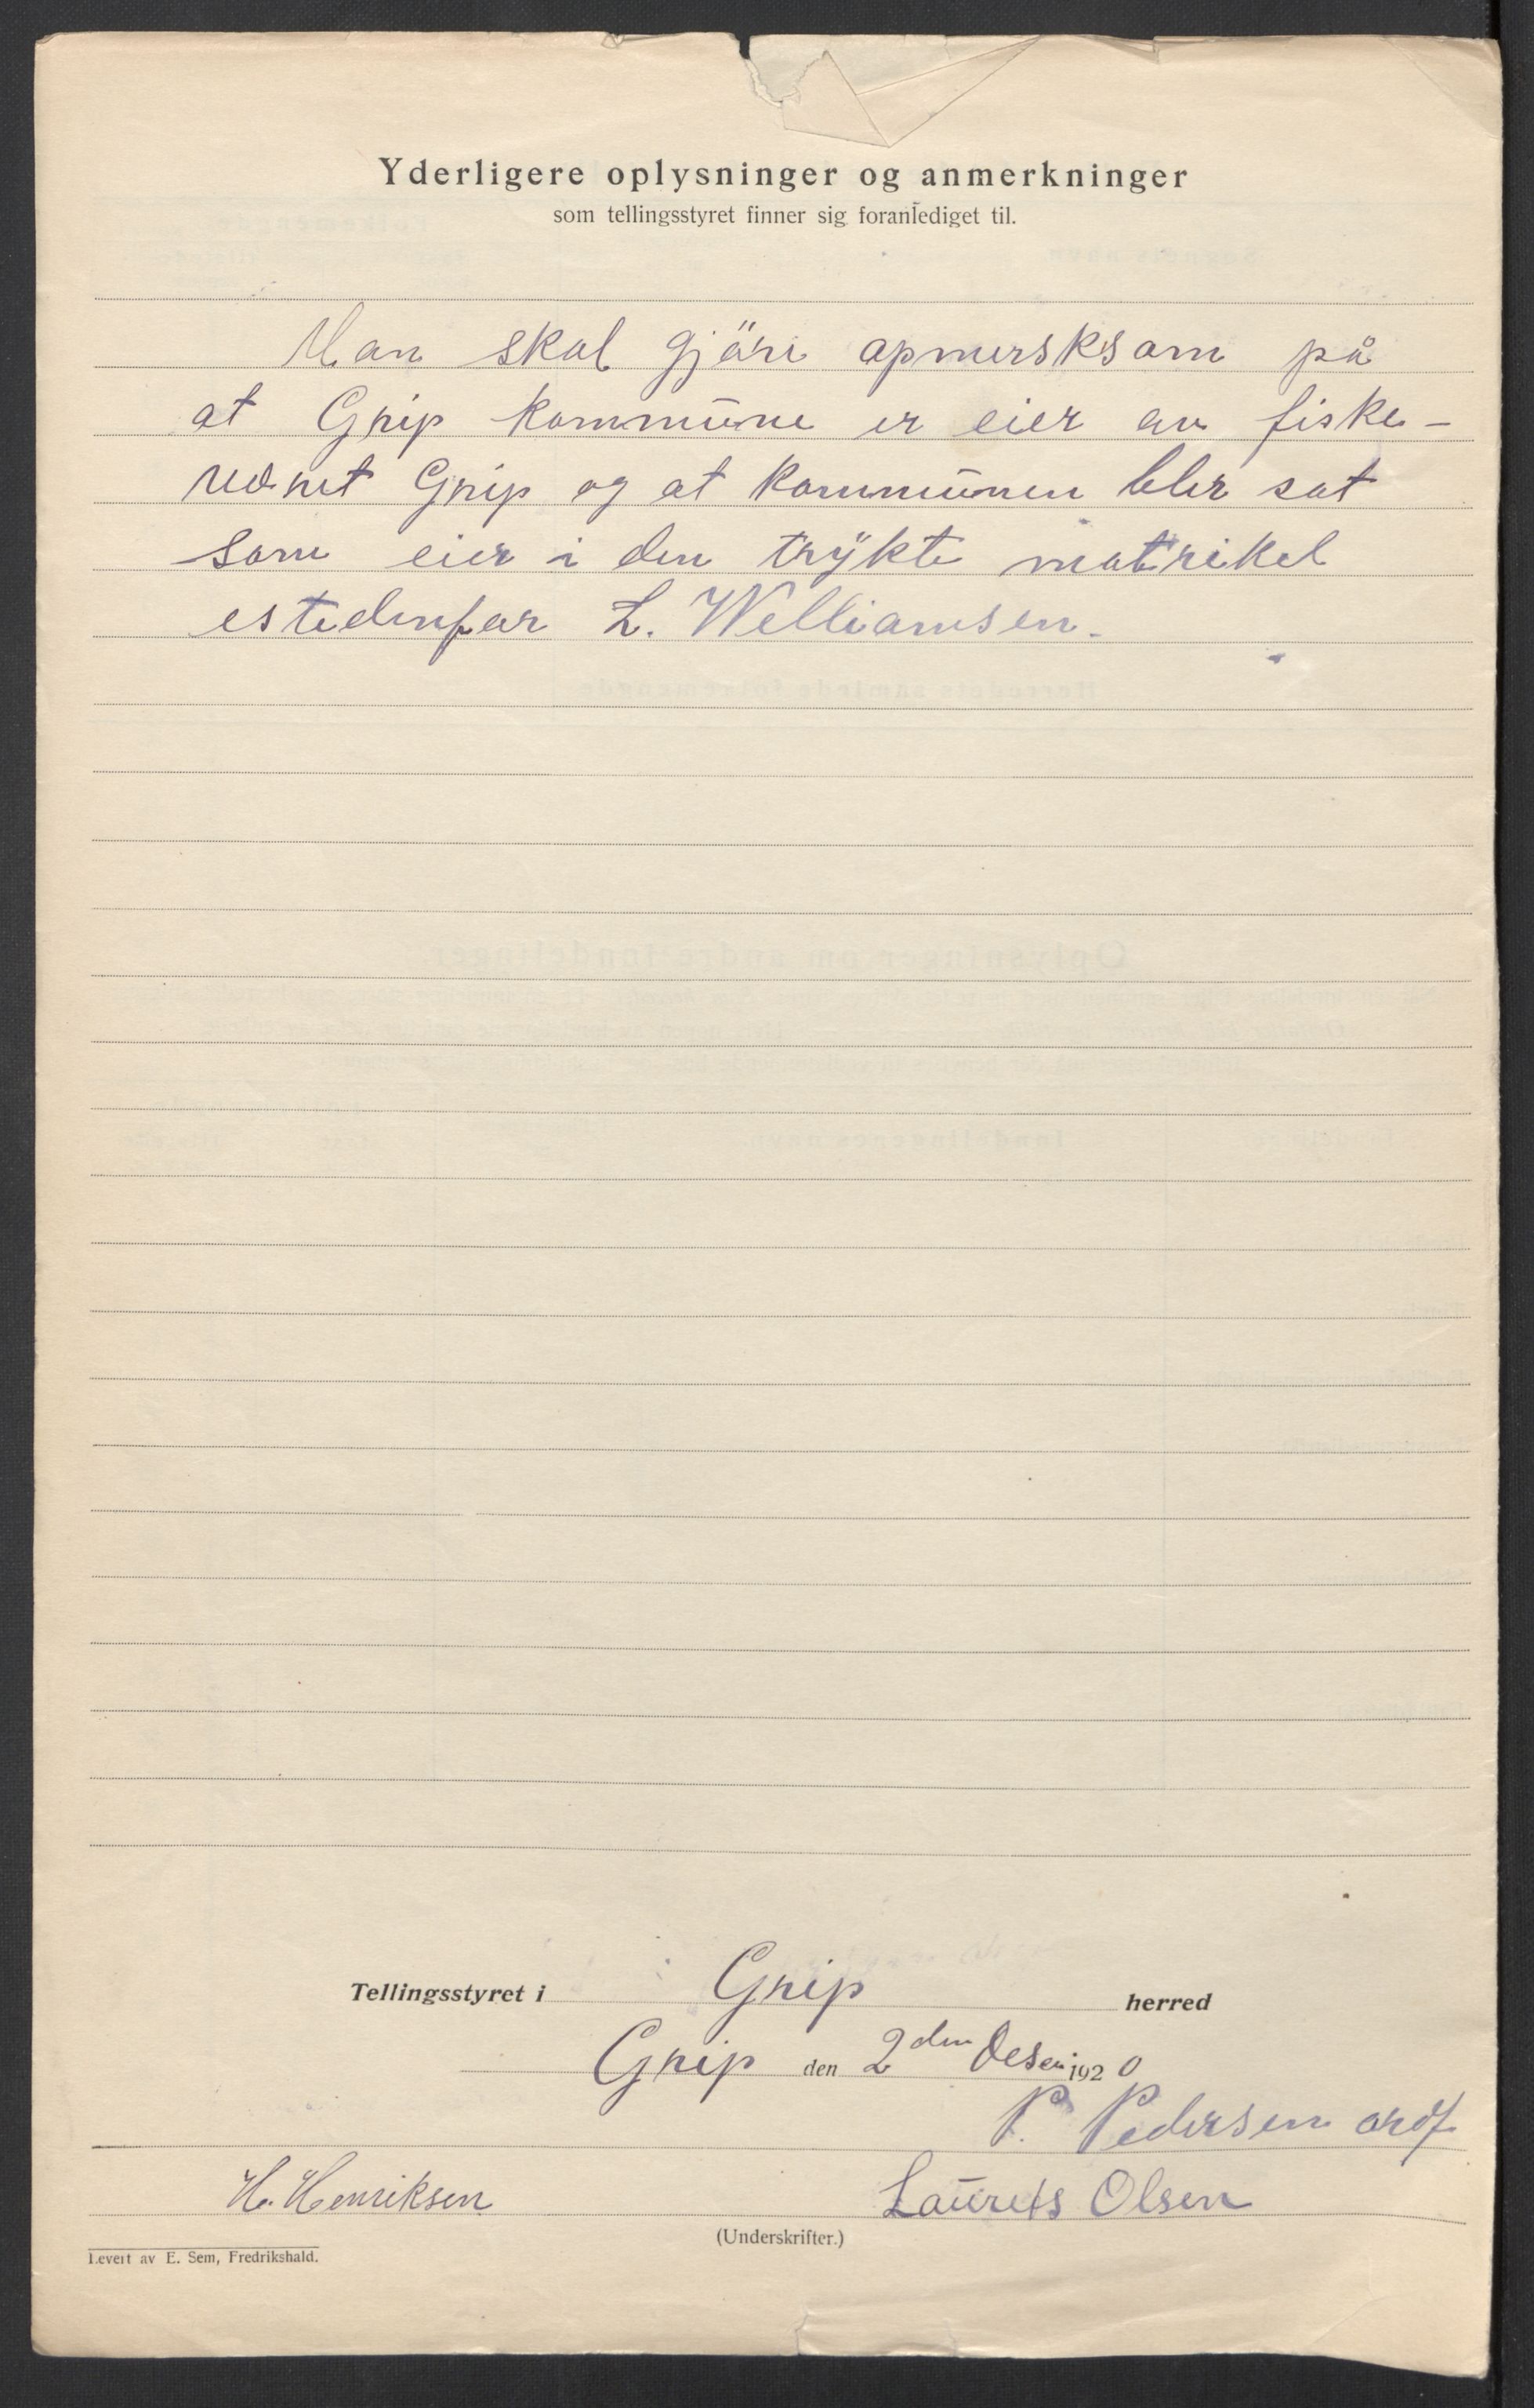 Yderligere oplysninger og anmerkninger
som tellingsstyret finner sig foranlediget til.
Man skal gjöre opmersksom på
at Grip kommune er eier av fiske-
været Grip og at kommunen blir sat
som eier i den trykte matrikel
estedenfor L. Welliamsen.
Tellingsstyret i Grip herred
Grip den 2den Desem 1920
P. Pedersen ordf
H. Henriksen Laurits Olsen
(Underskrifter.)
Levert av E. Sem, Fredrikshald.